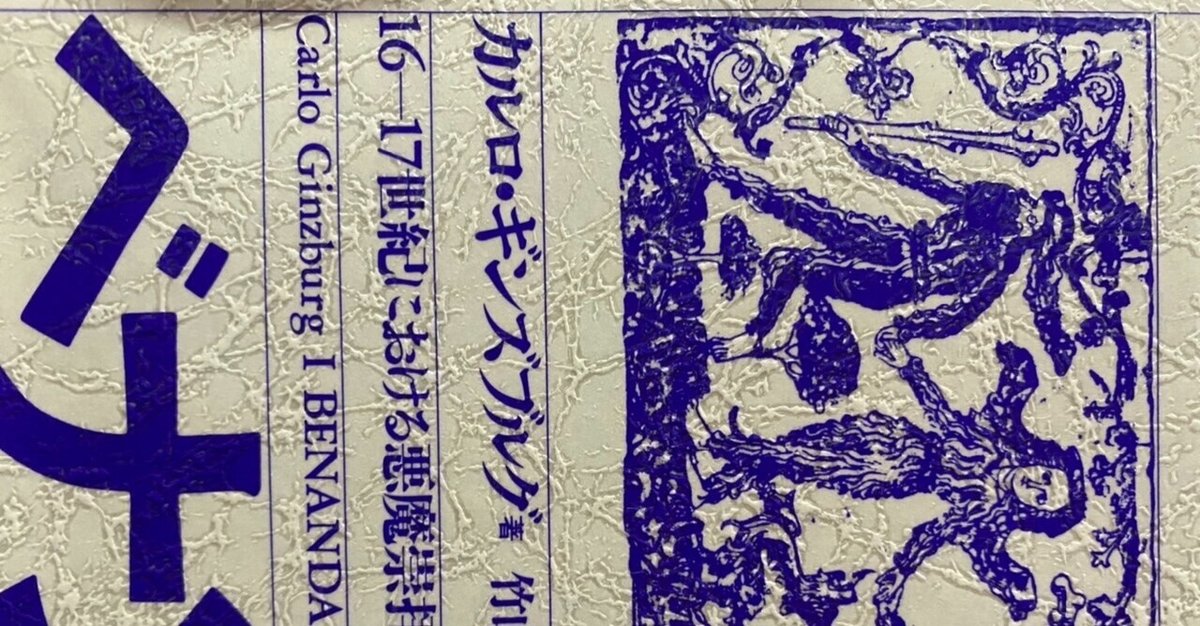 カルロ・ギンズブルグ著 竹
16―17世紀における悪魔崇
Carlo Ginzburg I BENANDA
ベナ